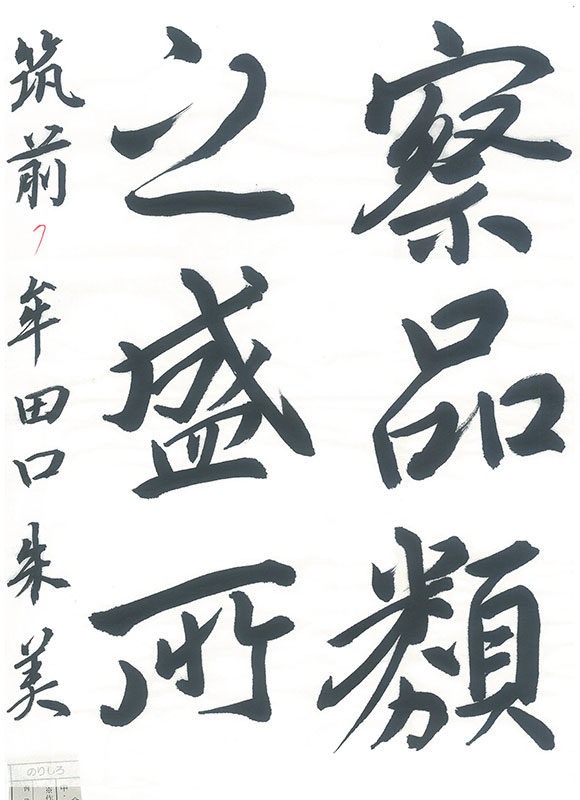 察品類
之盛所
筑前 牟田口朱美
のりしろ